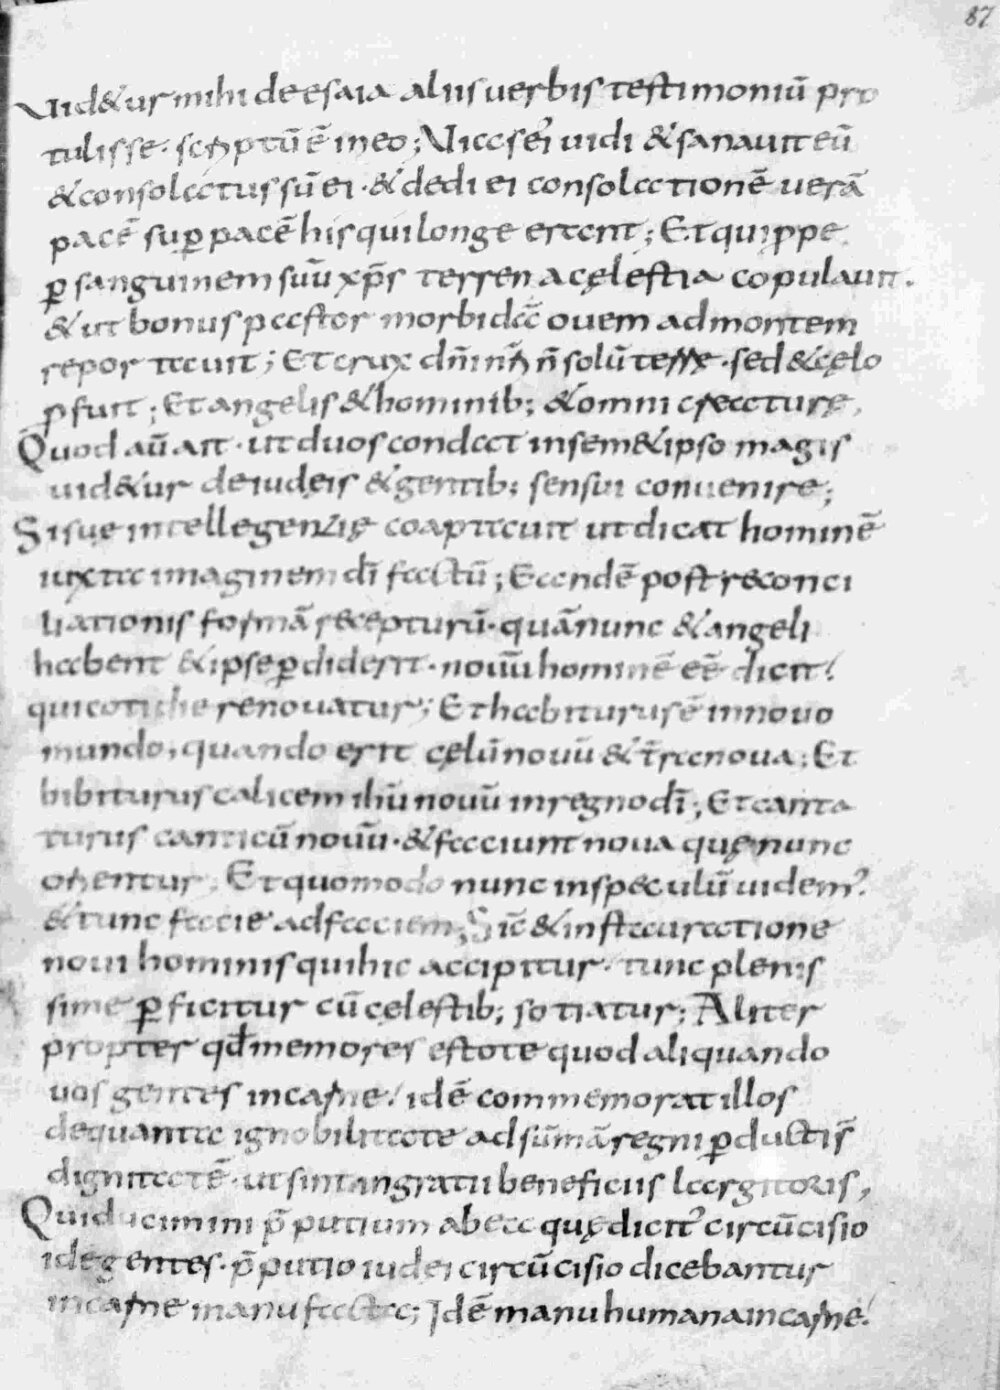 87
Uid&ur mihi de esaia aliis uerbis testimoniū pro
tulisse. scriptū ē in eo; Uias ei uidi & sanaui eū
& consolatus sū ei. & dedi ei consolationē uerā
pacē sup̱ pacē his qui longe erant; Et quippe
p̱ sanguinem suū xp̄s terrena cęlestia copulauit.
& ut bonus pastor morbidā ouem ad montem
reportauit; Et crux dn̄i nr̄i n̄ solū terrę. sed & cęlo
p̄fuit; Et angelis & hominib; & omni creaturę,
Quod aū ait. ut duos condat in semet ipso magis
uid&ur de iudęis & gentib; sensui conuenire;
Si suę intellegenzię coaptauit ut dicat hominē
iuxta imaginem dī factū; Eandē post reconci
liationis formā recepturū. quā nunc & angeli
habent & ipse p̱diderit. nouū hominē eē dicit!
qui cotidie renouatur; Et habiturus ē in nouo
mundo, quando erit cęlū nouū & t̄ra noua; Et
bibiturus calicem ihū nouū in regno dī; Et canta
turus canticū nouū. & faciunt noua quę nunc
orientur, Et quomodo nunc in speculū uidem᾽.
& tunc facie ad faciem; Sic̄ & instauratione
noui hominis qui hic accipitur. tunc plenis
sime p̱ficitur cū cęlestib; sotiatur; Aliter
propter qđ memores estote quod aliquando
uos gentes in carne! idē commemorat illos
de quanta ignobilitate ad sūmā regni p̱ductis
dignitatē. ut sint angratii beneficiis largitoris,
Qui ducimini p̄putium ab ea quę dicit᾽ circūcisio
idē gentes. p̄putio iudei circūcisio dicebantur
in carne manu facta; Idē manu humana in carne!